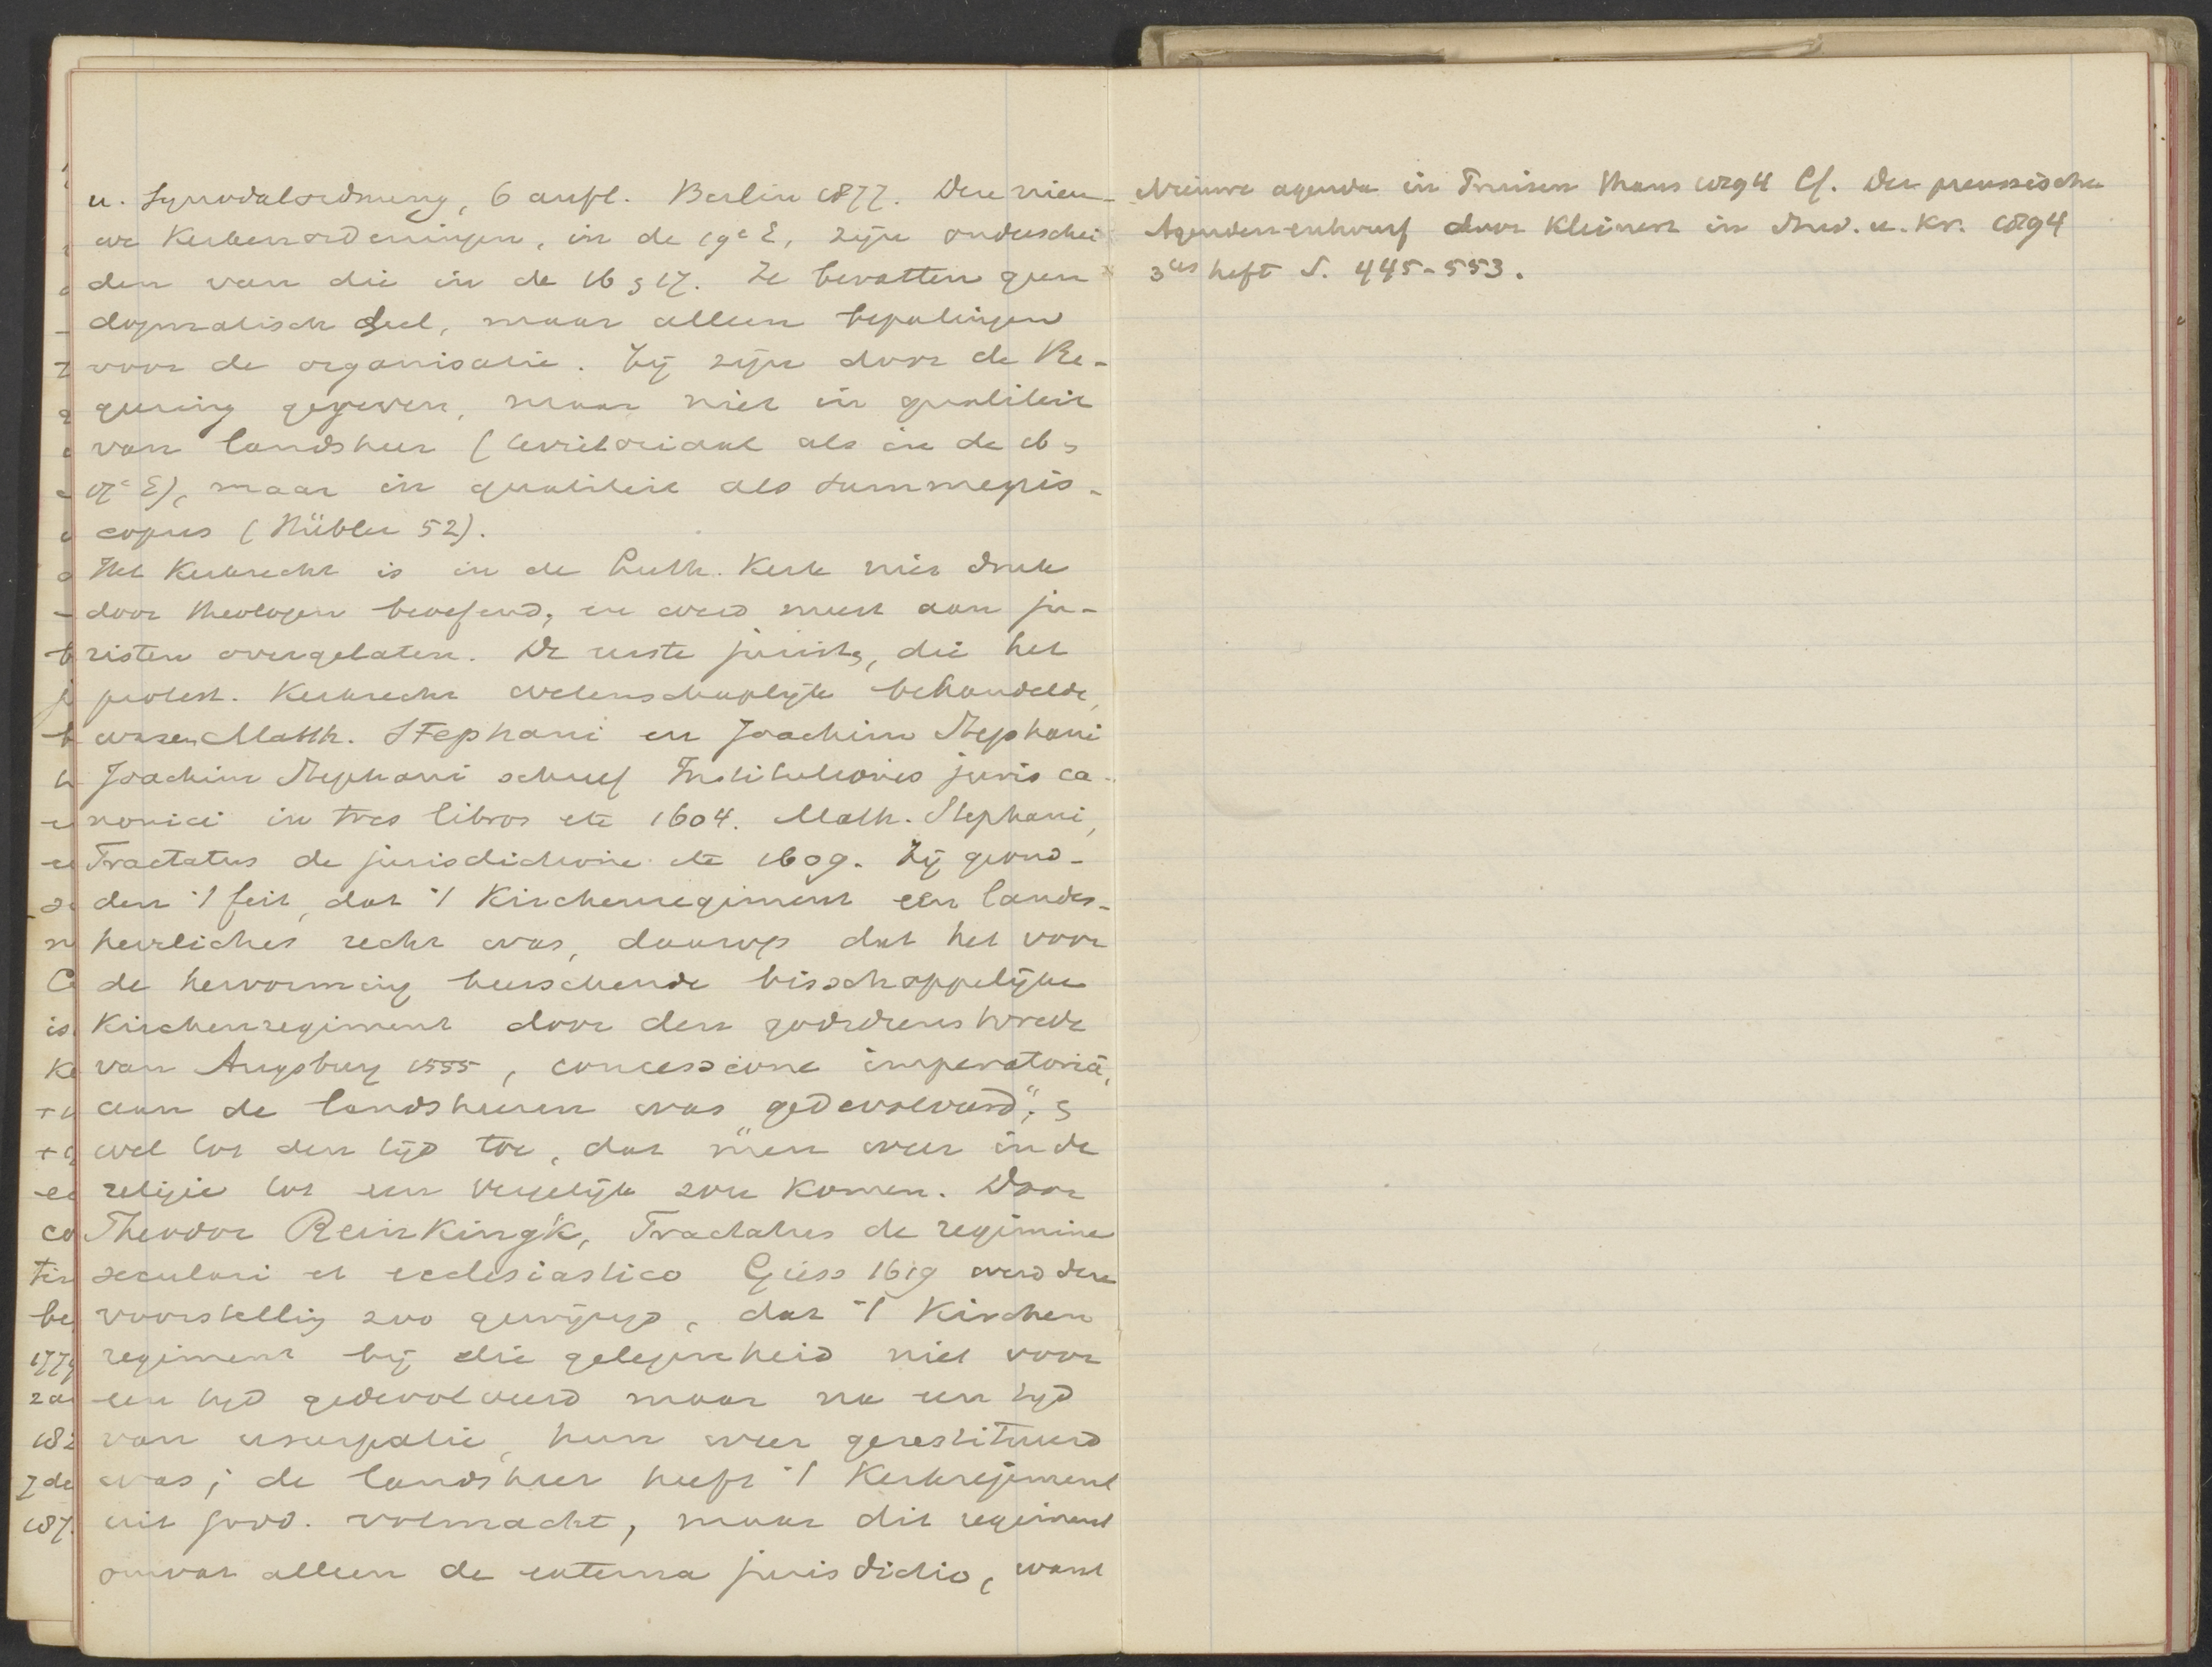 u. Synodalordnung, 6 aufl. Berlin 1877. Deze nieu-
we Kerkenordeningen, in de 19e E, zijn onderschei
den van die in de 16 & 17. Ze bevatten geen
dogmatisch deel, maar alleen bepalingen
voor de organisatie. Zij zijn door de Re-
geering gegeven, maar niet in qualiteit
van landsheer (territoriaal als in de 16 &
17e E), maar in qualiteit als summepis-
copus (Hübler 52).
Het Kerkrecht is in de Luth. Kerk niet druk
door theologen beoefend, en werd meest aan ju-
risten overgelaten. De eerste jurist, die het
protest. Kerkrecht wetenschaplijk behandelde,
waren Matth. Stephani en Joachim Stephani
Joachim Stephani schreef Institutiones juris ca-
nonici in tres libros etc 1604. Math. Stephani,
Tractatus de jurisdictione etc 1609. Zij grond-
den 't feit, dat 't Kirchenregiment een landes-
herrliches recht was, daarop dat het voor
de hervorming heerschende bisschoppelijke
Kirchenregiment door den godsdienstvrede
van Augsburg 1555, concessione imperatoriâ,
aan de landsheeren was "gedevolveerd"; &
wel tot den tijd toe, dat men weer in de
religie tot een vergelijk zou komen. Door
Theodor Reinkingk, Tractatus de regimine
seculari et ecclesiastico Giess 1619 werd deze
voorstelling zoo gewijzigd, dat 't Kirchen
regiment bij die gelegenheid niet voor
een tijd gedevolveerd maar na een tijd
van usurpatie, hun weer gerestitueerd
was; de landsheer heeft 't Kerkregiment
uit godd. volmacht, maar dit regiment
omvat alleen de externa jurisdictio, want
Nieuwe agenda in Pruisen thans 1894 Cf. Der preussische
Agenden-entwurf door Kleinert in Stud. u. Kr. 1894
3tes heft S. 445-553.